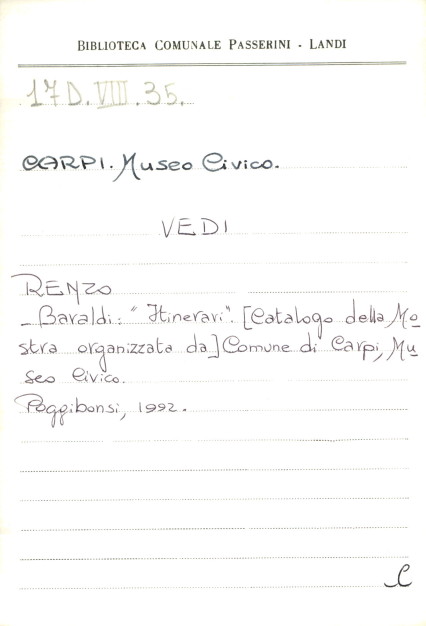 BIBLIOTECA COMUNALE PASSERINI - LANDI
17D.VIII.35.
CARPI. Museo Civico.
VEDI
RENZO
- Baraldi: "Itinerari". [Catalogo della Mo
stra organizzata da] Comune di Carpi, Mu
seo Civico.
Poggibonsi, 1992.
C